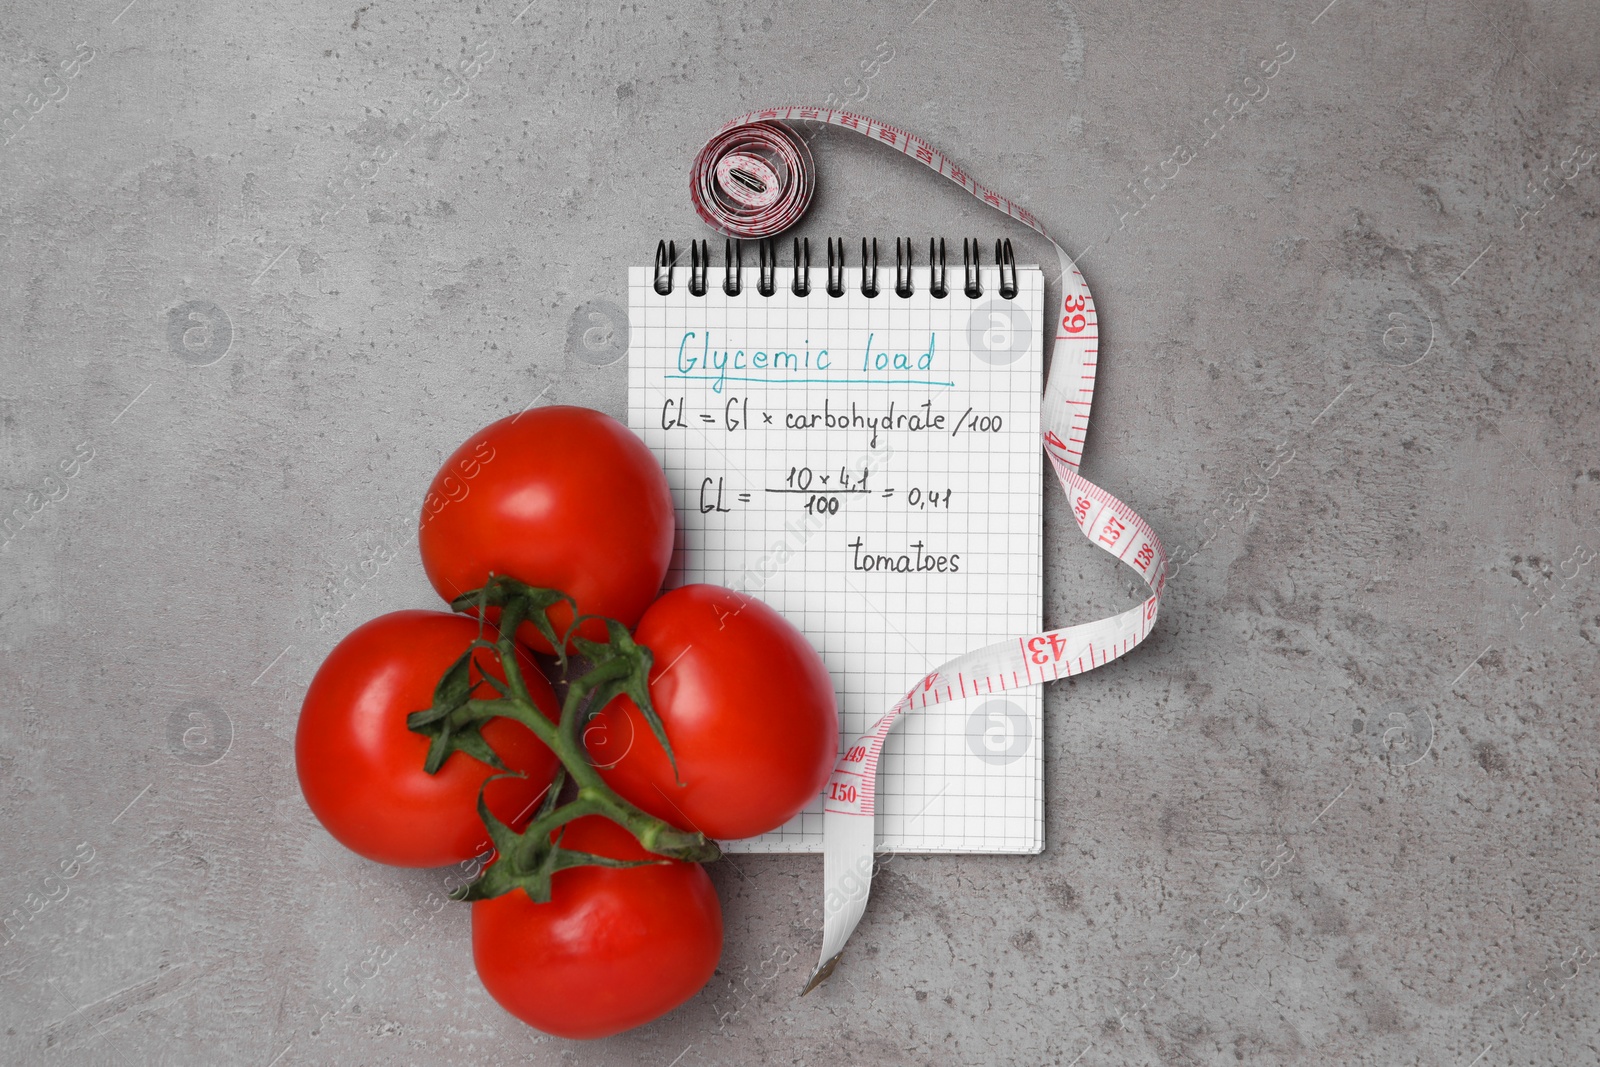 Glycemic load
GL = GI × carbohydrate /100
GL = 10 × 4,1 / 100 = 0,41
tomatoes
39
4
136
137
138
43
4
149
150
Africa Images